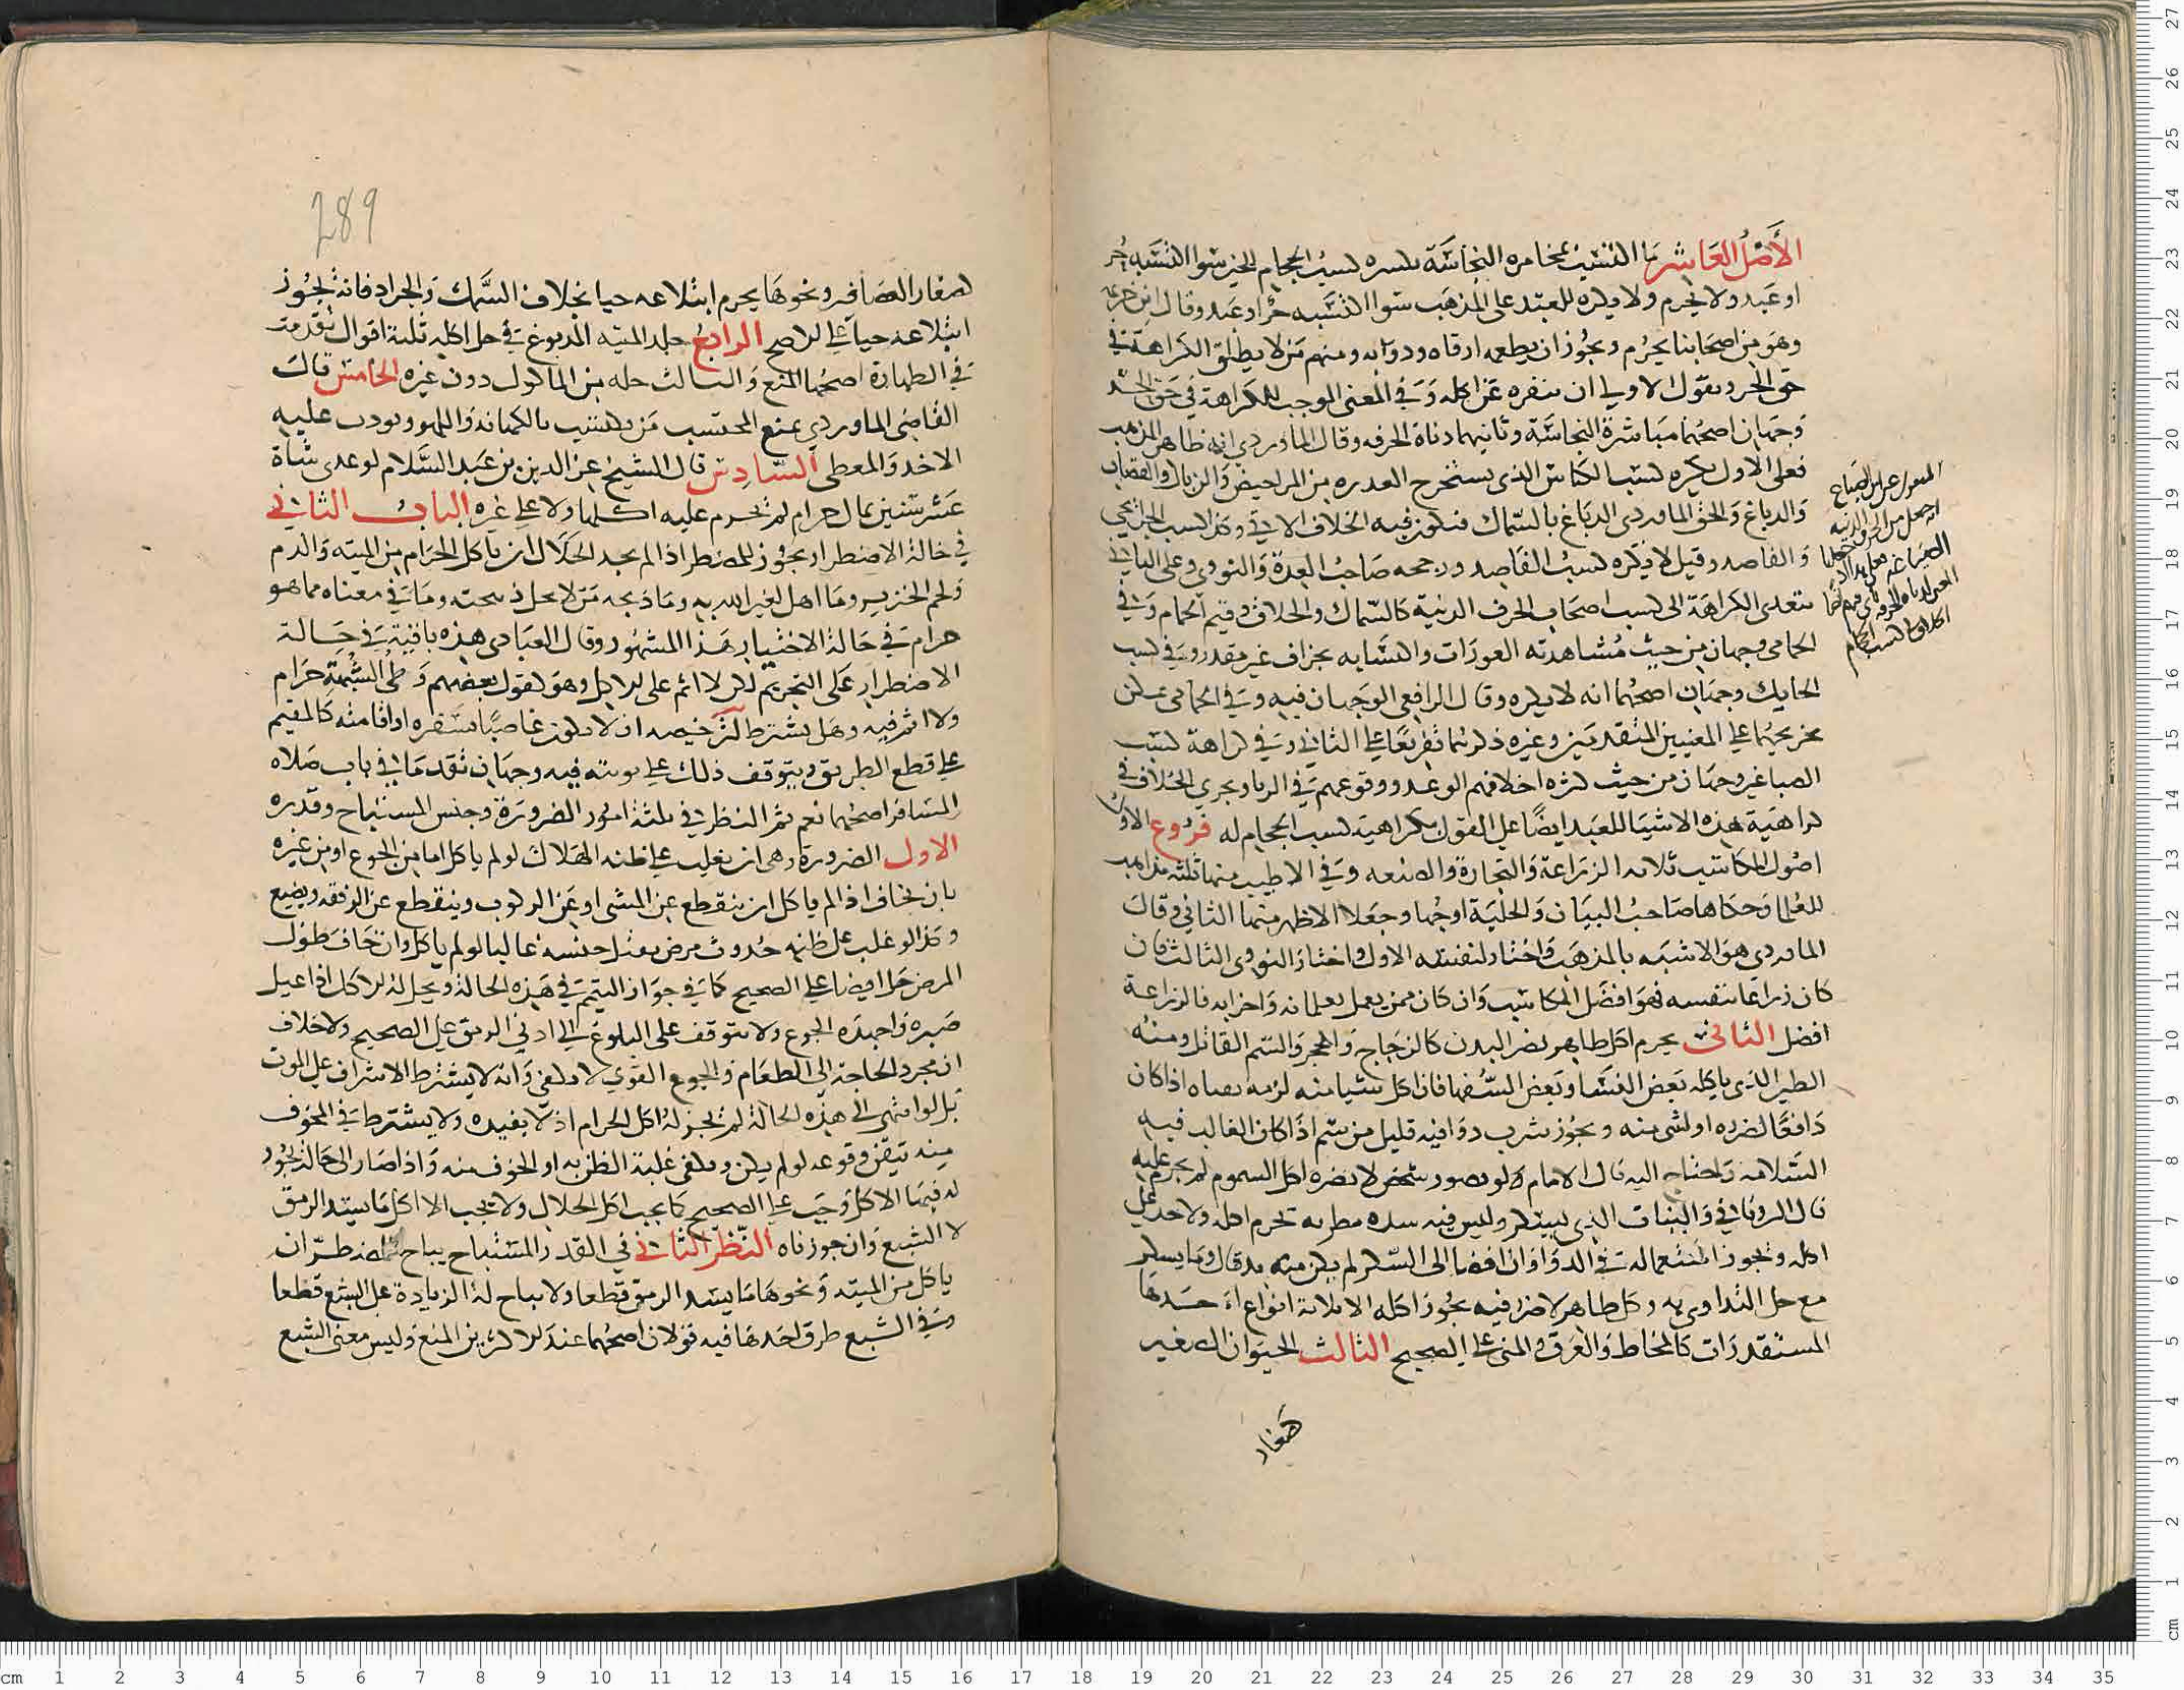 الأصل العاشر ما اكتسب بمخامرة النجاسة يكره ككسب الحجام الحر سوا اكتسبه حر
او عبد ولا يحرم ولا يكره للعبد على المذهب سوا اكتسبه حر او عبد وقال ابن خزيمة
وهو من اصحابنا يحرم ويجوز ان يطعمه ارقاه ودوابه ومنهم من لا يطلق الكراهة في
حق الحر ويقول الاولى ان يتنزه عن اكله وفي المعنى الموجب للكراهة في حق الحر
وجهان اصحهما مباشرة النجاسة وثانيهما دناة الحرفه وقال الماوردي انه ظاهر المذهب
فعلى الاول يكره كسب الكناس الذى يستخرج العدره من المراحيض والزبال والقصاب
والدباغ والحق الماوردى الدباغ بالسماك فيكون فيه الخلاف الاتي وكذا كسب الجرايحي
والفاصد وقيل لا يكره كسب الفاصد ورجحه صاحب العدة والنووي وعلى الثاني
تتعدى الكراهة الى كسب اصحاب الحرف الدنية كالسماك والحلاق وقيم الحمام وفي
الحامى وجهان من حيث مشاهدته العورات واكتسابه بجزاف غير مقدر وفي كسب
الحايك وجهان اصحهما انه لا يكره وقال الرافعي الوجهان فيه وفي الحامى يمكن
تخريجهما على المعنيين المتقدمين وغيره ذكرهما تفريعا على الثاني وفي كراهة كسب
الصباغين وجهان من حيث كثره اخلافهم الوعد ووقوعهم في الربا ويجرى الخلاف في
كراهية هذه الاشيا للعبد ايضا على القول بكراهية كسب الحجام له فروع الاول
اصول المكاسب ثلاثه الزراعة والتجارة والصنعه وفي الاطيب منها ثلثه مذاهب
للعلما وحكاها صاحب البيان والحلية اوجها وجعلا الاظهر منها الثاني وقال
الماوردى هو الاشبه بالمذهب واختار لنفسه الاول واختار النووى الثالث فان
كان زراعا بنفسه فهو افضل المكاسب وان كان ممن يعمل بغلمانه واجرايه فالزراعة
افضل الثاني يحرم اكل طاهر يضر البدن كالزجاج والحجر والسم القاتل ومنه
الطين الذى ياكله بعض النسا وبعض السفها فان اكل شيا منه لزمه بصاه اذا كان
دافعا لضرره او لشى منه ويجوز شرب دوا فيه قليل من سم اذا كان الغالب فيه
السلامه واحتاج اليه قال الامام ولو تصور شخص لا يضره اكل السموم لم يحرم عليه
قال الروياني والنبات الذى يسكر وليس فيه شده مطربه يحرم اكله ولا حد على
اكله ويجوز استعماله في الدوا وان افضا الى السكر لم يكن منه بد قال وما يسكر
مع حل التداوى به وكل طاهر لا ضرر فيه يجوز اكله الا ثلاثة انواع احدها
المستقذرات كالمخاط والعرق والمني على الصحيح الثالث الحيوان الصغير
كصغار
المنقول عن ابن الصباغ
انه جعل من الحرف الدنيه
289
كصغار العصافير ونحوها يحرم ابتلاعه حيا بخلاف السمك والجراد فانه يجوز
ابتلاعه حيا على الاصح الرابع جلد الميته المدبوغ في حل اكله ثلثة اقوال تقدمت
في الطهارة اصحها المنع والثالث حله من الماكول دون غيره الخامس قال
القاضى الماوردي يمنع المحتسب من يكتسب بالكهانه واللهو ويودب عليه
الاخذ والمعطى السادس قال الشيخ عز الدين بن عبد السلام لو غدى شاة
عشر سنين بمال حرام لم يحرم عليه اكلها ولا على غيره الباب الثاني
في حالة الاضطرار ويجوز للمضطر اذا لم يجد الحلال ان ياكل الحرام من الميته والدم
ولحم الخنزير وما اهل لغير الله به وما ذبحه من لا يحل ذبيحته وما في معناه مما هو
حرام في حالة الاختيار هذا المشهور وقال العبادى هذه باقية في حالة
الاضطرار على التحريم لكن لا اثم على الاكل وهو كقول بعضهم وطى الشبهة حرام
ولا اثم فيه وهل يشترط لترخيصه ان لا يكون عاصيا بسفره او اقامته كالمقيم
على قطع الطريق ويتوقف ذلك على توبته فيه وجهان تقدما في باب صلاه
المسافر اصحهما نعم ثم النظر في ثلثة امور الضرورة وجنس المستباح وقدره
الاول الضرورة وهى ان يغلب على ظنه الهلاك لو لم ياكل اما من الجوع او من غيره
بان يخاف اذا لم ياكل ان ينقطع عن المشى او عن الركوب وينقطع عن الرفقه ويضيع
وكذا لو غلب على ظنه حدوث مرض يقتل جنسه غالبا لو لم ياكل وان خاف طول
المرض حل ايضا على الصحيح كما في جواز التيمم في هذه الحالة ويحل له الاكل اذا عيل
صبره واجهده الجوع ولا يتوقف على البلوغ الى ادنى الرمق على الصحيح ولا خلاف
ان مجرد الحاجة الى الطعام والجوع القوي لا يكفي وانه لا يشترط الاشراف على الموت
بل لو انتهى الى هذه الحالة لم يجز له اكل الحرام اذ لا يفيده ولا يشترط في المخوف
منه تيقن وقوعه لو لم ياكل ويكفى غلبة الظن به او الخوف منه واذا صار الى حالة يجوز
له فيها الاكل وجب على الصحيح كما يجب اكل الحلال ولا يجب الا اكل ما يسد الرمق
لا الشبع وان جوزناه النظر الثاني في القدر المستباح يباح للمضطر ان
ياكل من الميته ونحوها ما يسد الرمق قطعا ولا يباح له الزيادة على الشبع قطعا
وفي الشبع طرق احدها فيه قولان اصحهما عند الاكثرين المنع وليس معنى الشبع